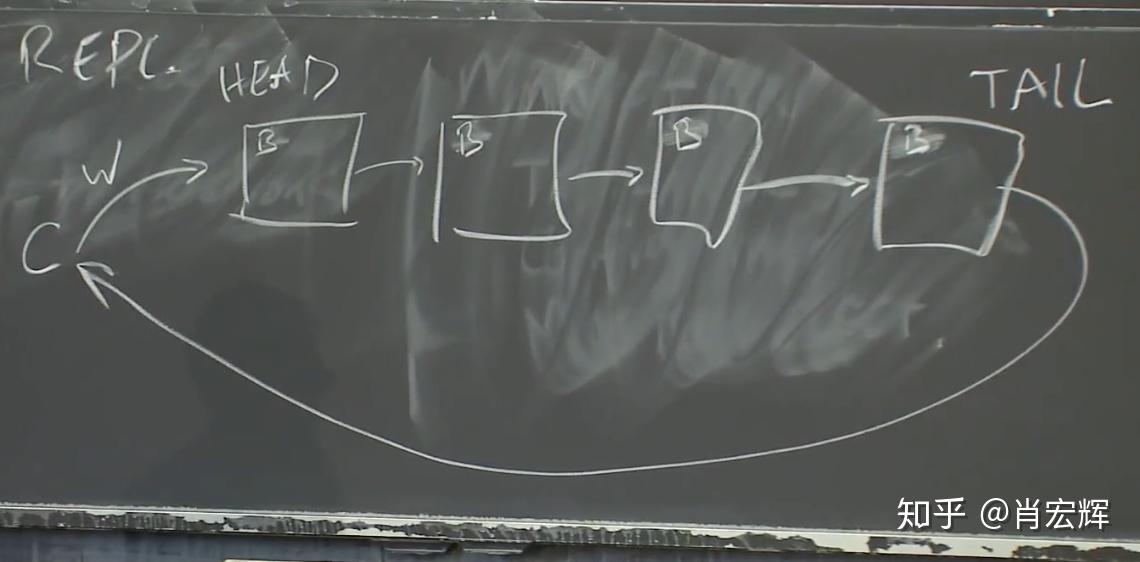 REPL.
HEAD
TAIL
B
B
B
B
W
C
知乎 @肖宏辉